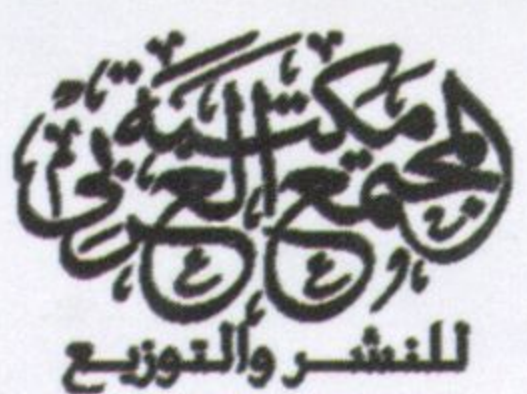 مكتبة
المجمع العربي
للنشر والتوزيع